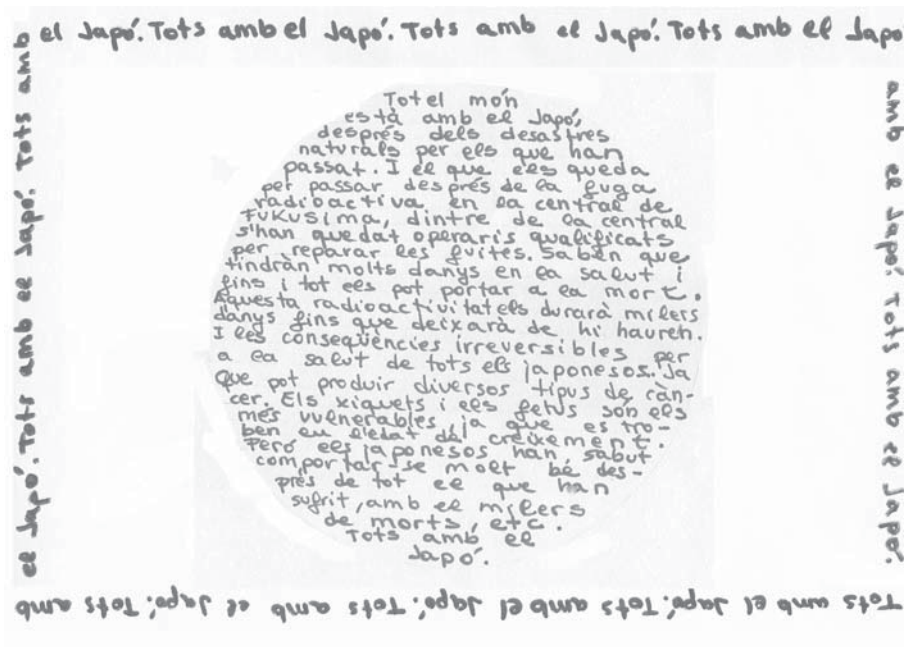 el Japó. Tots amb el Japó. Tots amb el Japó. Tots amb el Japó
amb el Japó. Tots amb el Japó.
Tots amb el Japó. Tots amb el Japó. Tots amb el Japó. Tots amb
el Japó. Tots amb el Japó. Tots amb
Tot el món
està amb el Japó,
després dels desastres
naturals per els que han
passat. I el que els queda
per passar després de la fuga
radioactiva en la central de
Fukusima, dintre de la central
s'han quedat operaris qualificats
per reparar les fuites. Saben que
tindràn molts danys en la salut i
fins i tot els pot portar a la mort.
Aquesta radioactivitat els durarà milers
danys fins que deixarà de hi haureh.
I les conseqüències irreversibles per
a la salut de tots els japonesos. Ja
que pot produir diversos tipus de càn-
cer. Els xiquets i els fetus són els
més vulnerables, ja que es tro-
ben en l'edat del creixement.
Però els japonesos han sabut
comportar-se molt bé des-
prés de tot el que han
sufrit, amb el milers
de morts, etc.
Tots amb el
Japó.